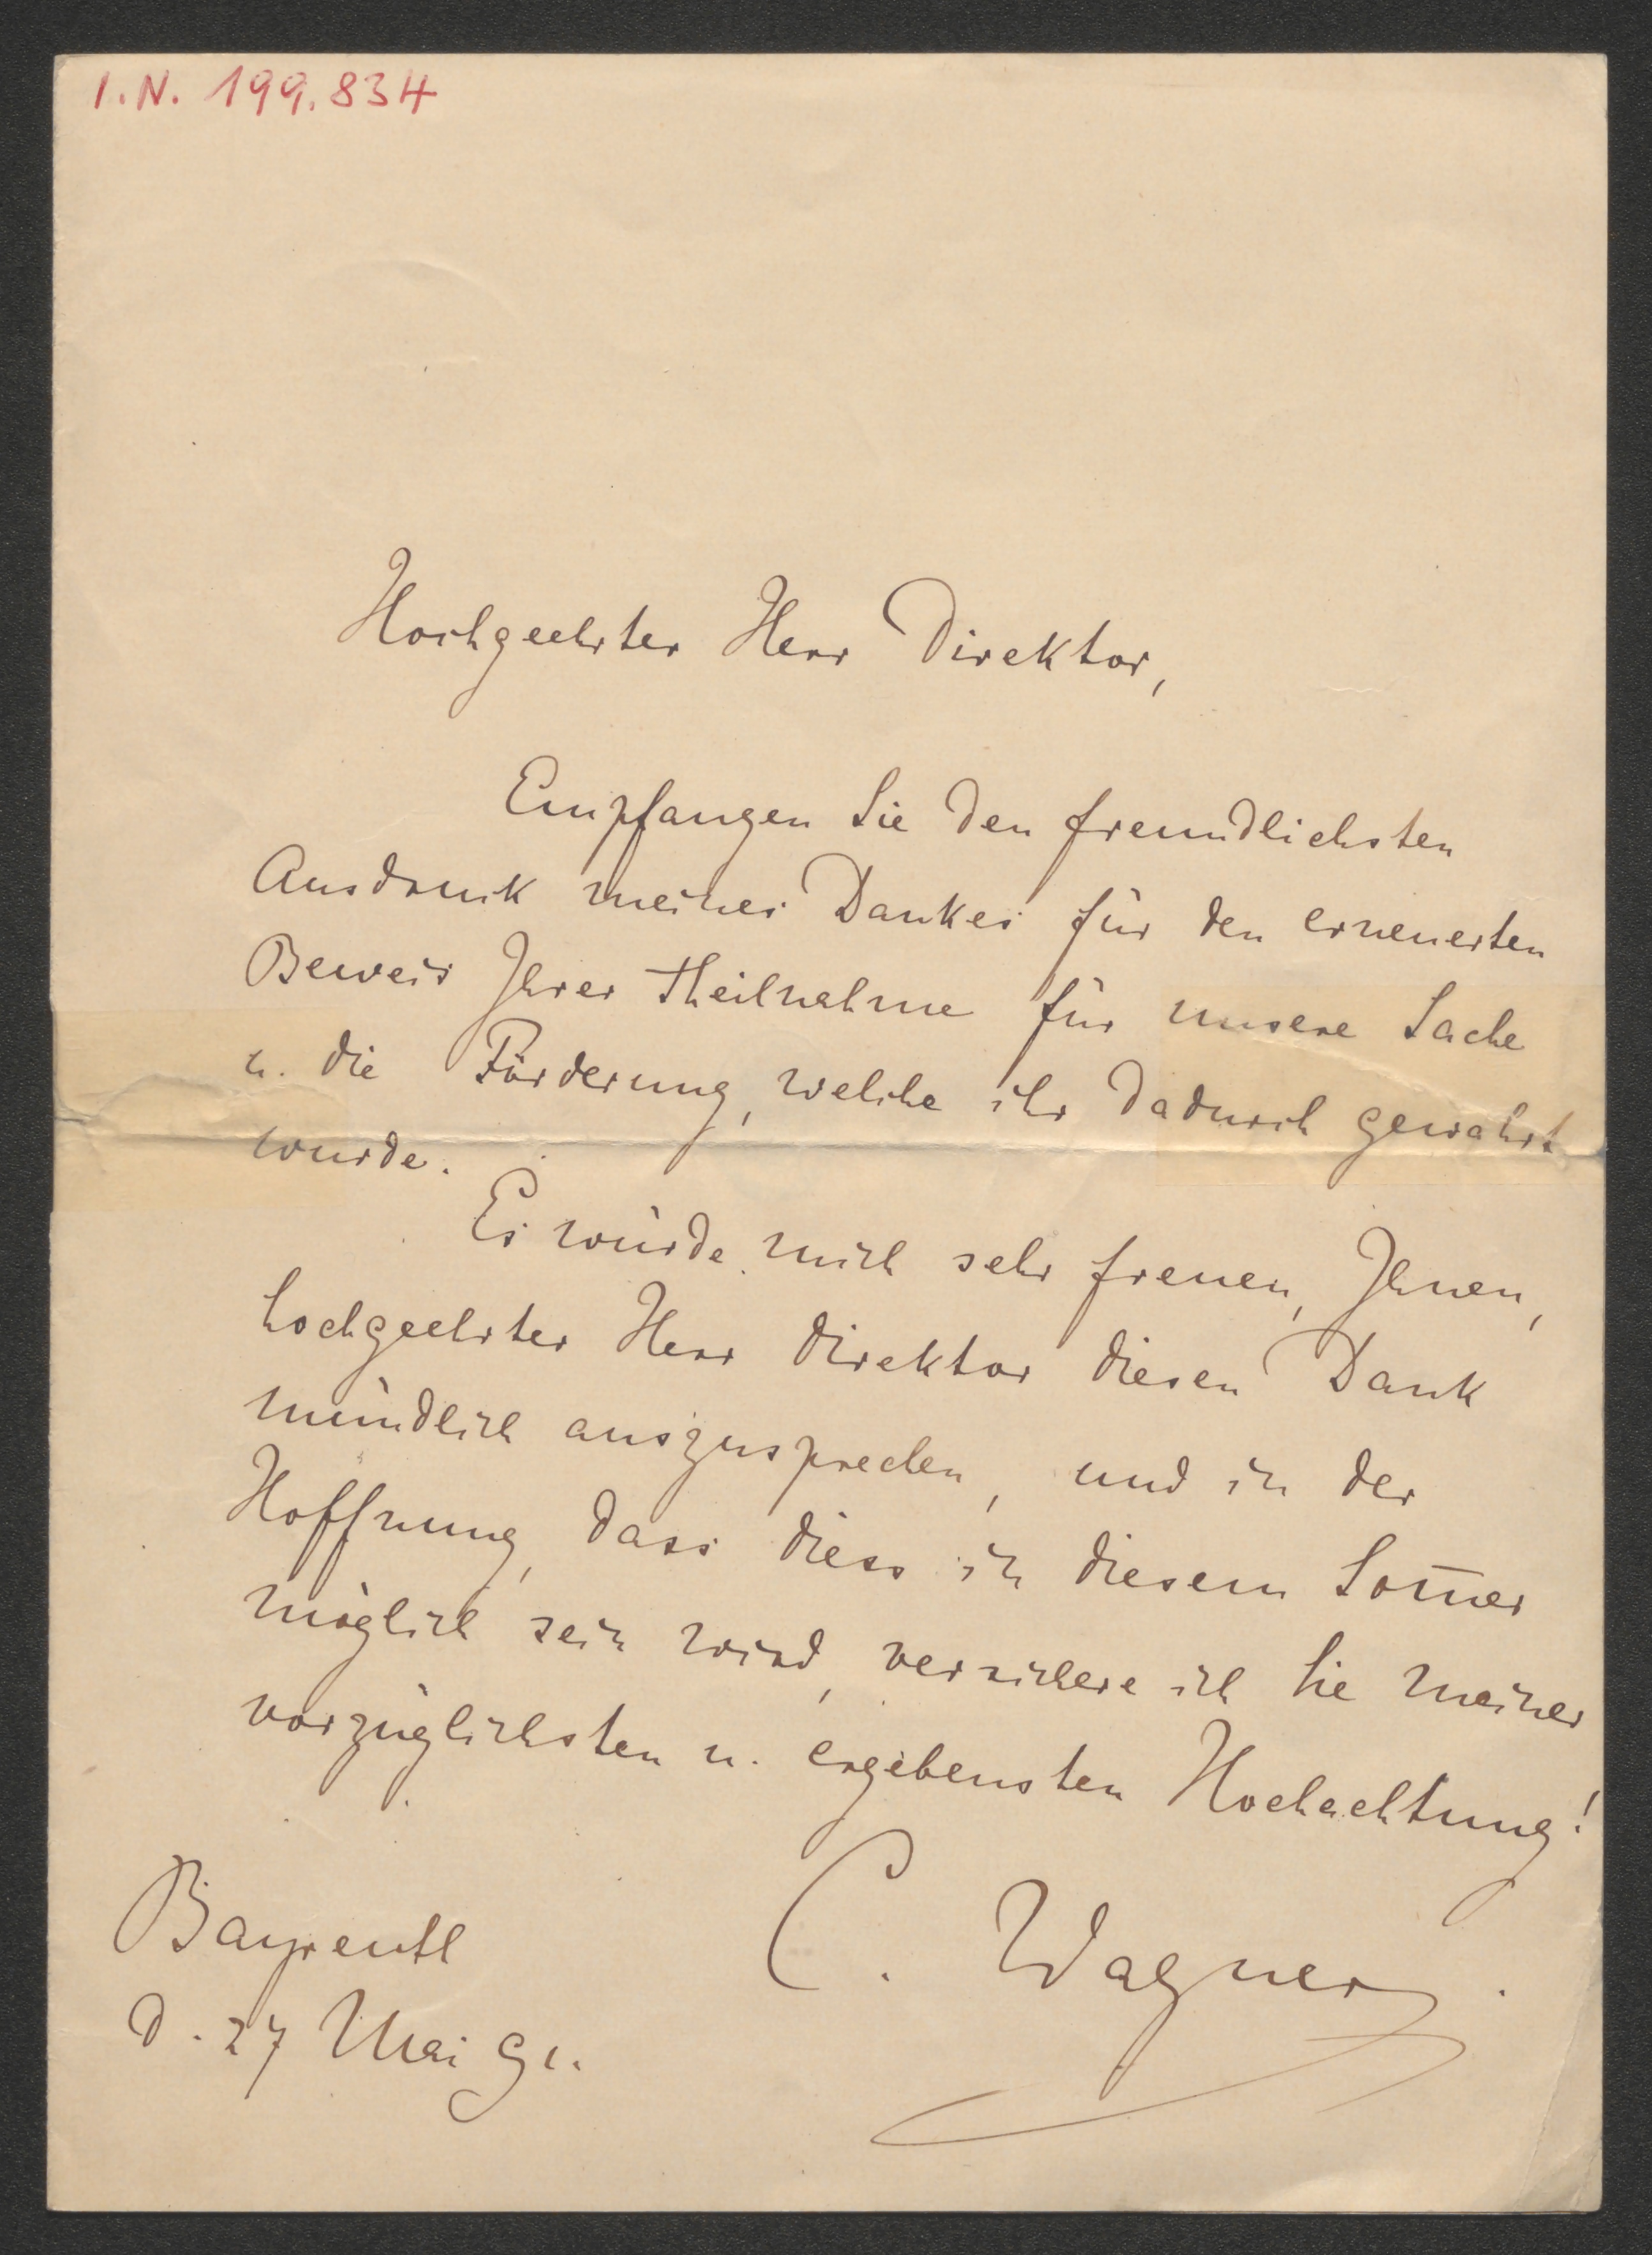 I.N. 199.834
Hochgeehrter Herr Direktor,
Empfangen Sie den freundlichsten
Ausdruck meines Dankes für den erneuerten
Beweis Ihrer Theilnahme für unsere Sache
u. die Förderung, welche ihr dadurch gewahrt
wurde.
Es würde mich sehr freuen, Ihnen,
hochgeehrter Herr Direktor diesen Dank
mündlich auszusprechen, und in der
Hoffnung, dass diess in diesem Som̅er
möglich sein wird, versichere ich Sie meiner
vorzüglichsten u. ergebensten Hochachtung!
C. Wagner.
Bayreuth
d. 27 Mai 91.